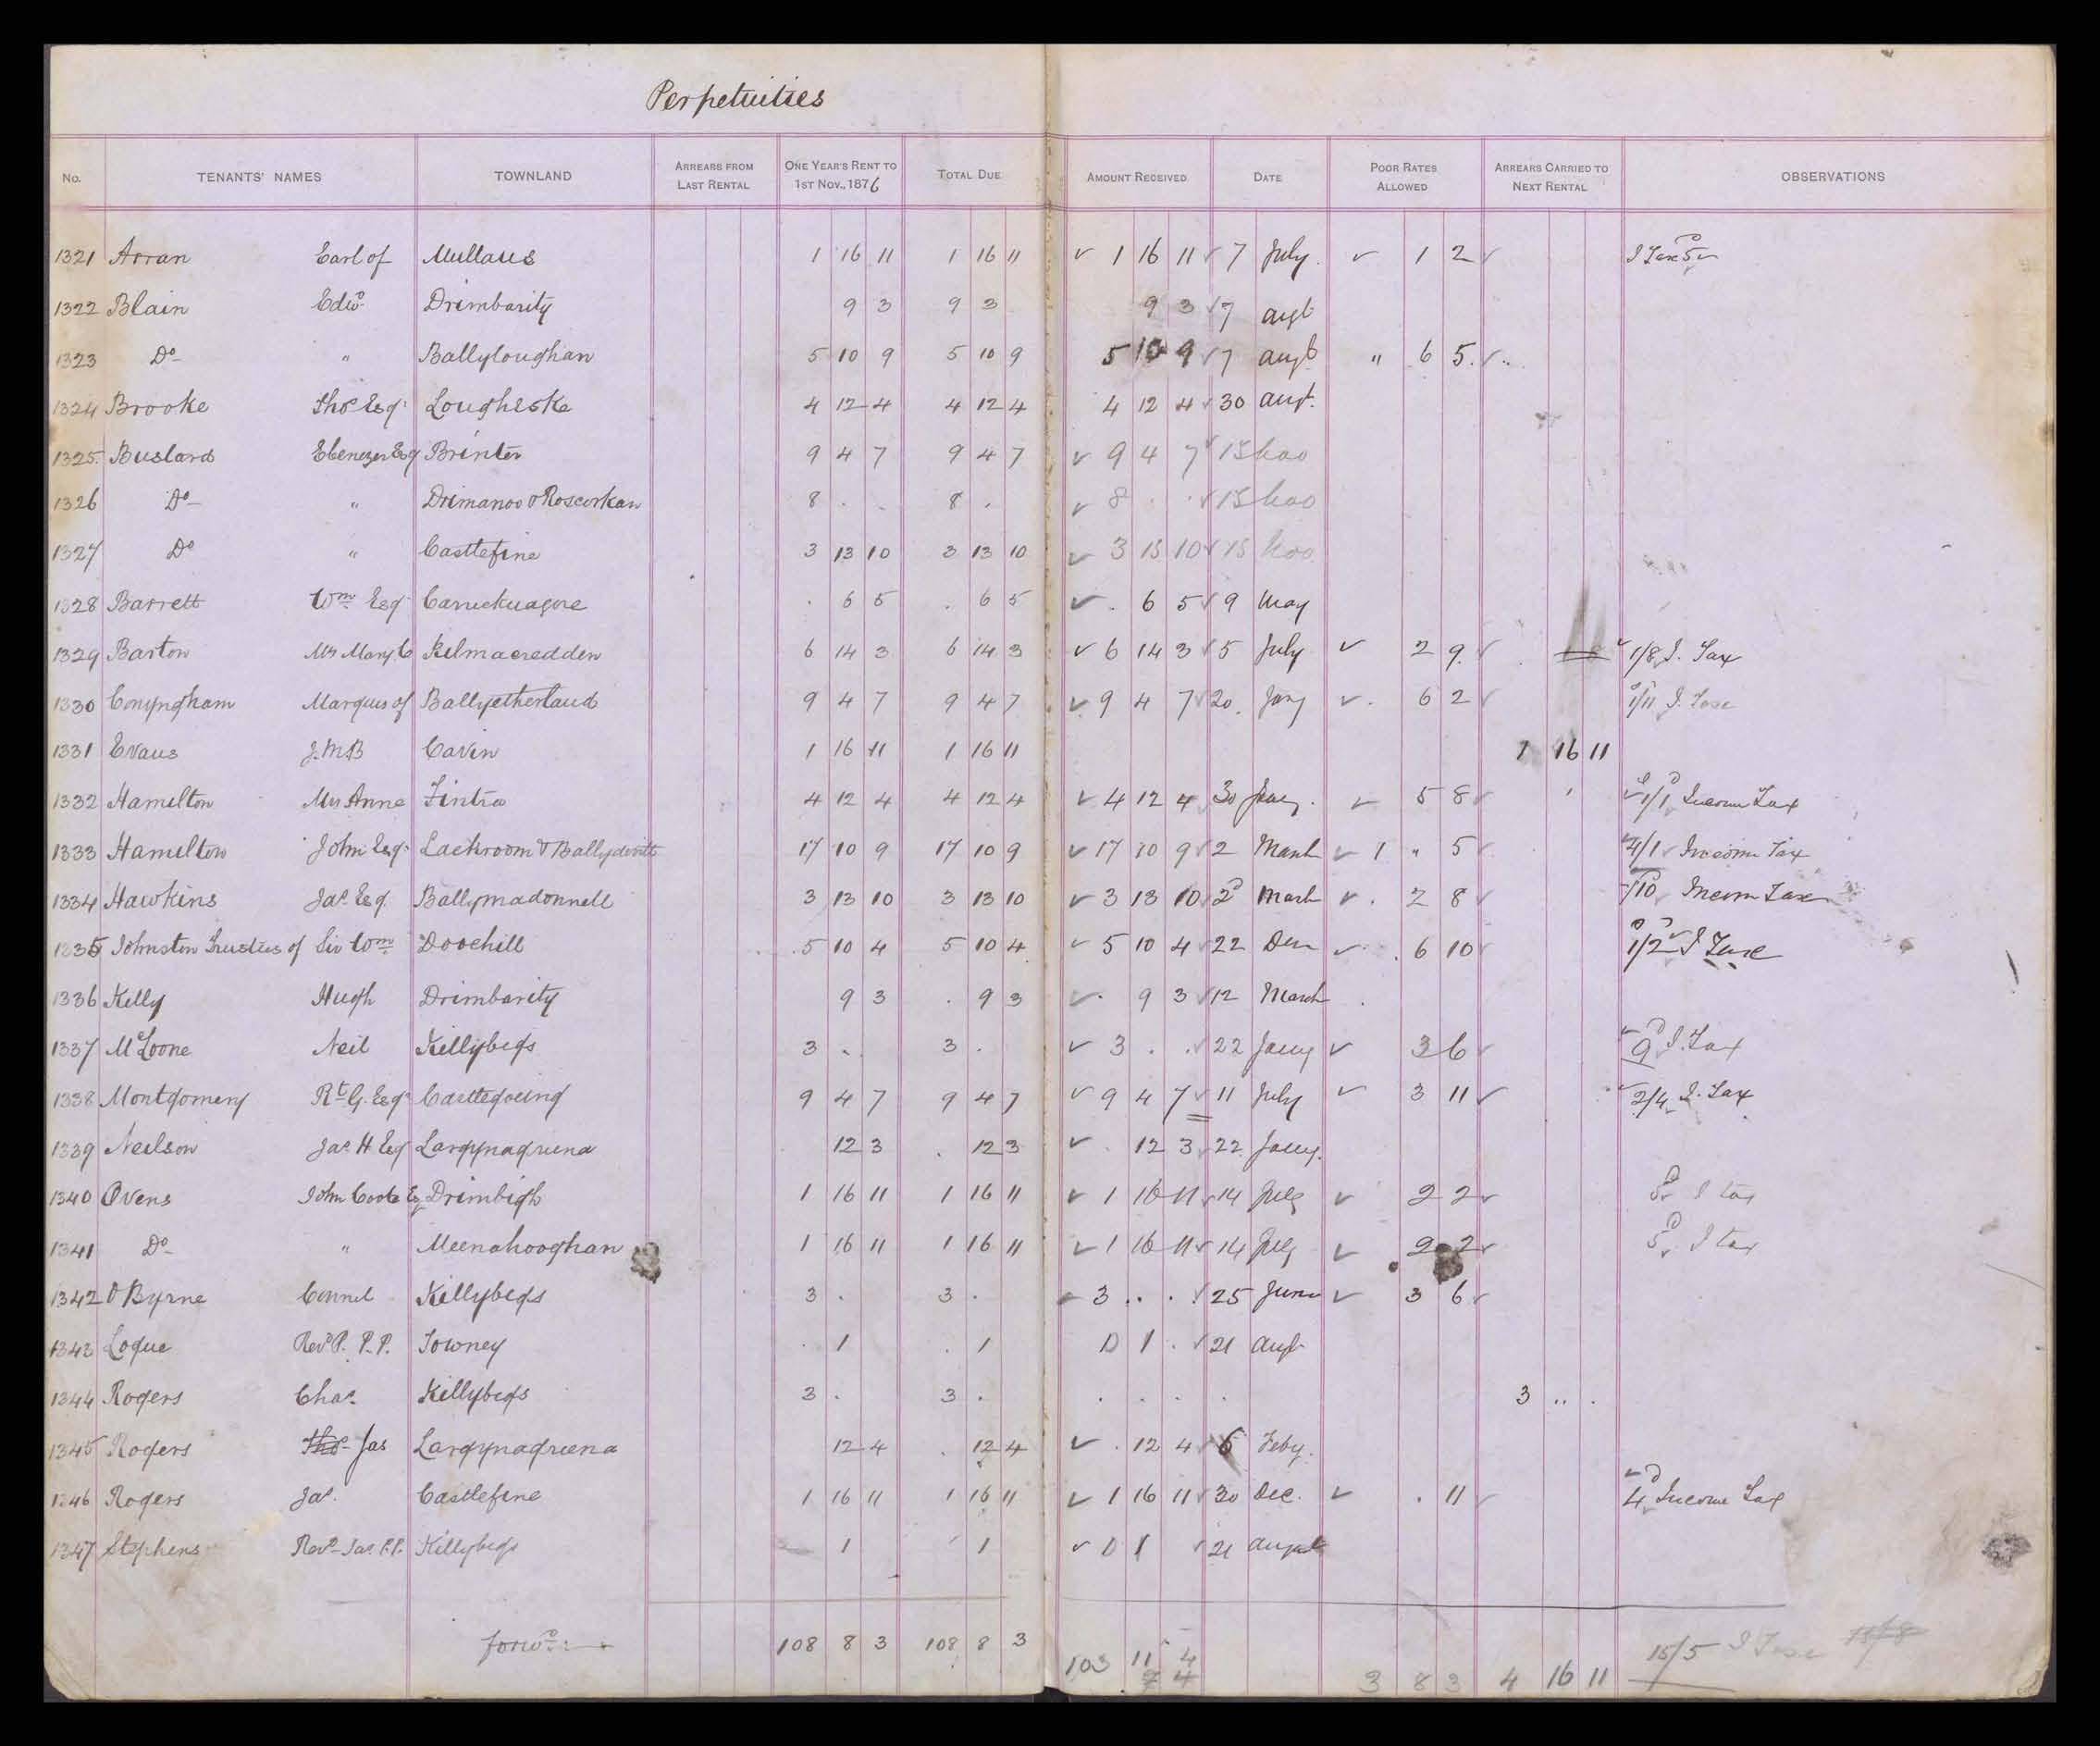 Perpetuities
No. TENANTS' NAMES TOWNLAND ARREARS FROM LAST RENTAL ONE YEAR'S RENT TO 1ST NOV., 1876 TOTAL DUE AMOUNT RECEIVED DATE POOR RATES ALLOWED ARREARS CARRIED TO NEXT RENTAL OBSERVATIONS
1321 Arran Earl of Mullans 1 16 11 1 16 11 1 16 11 7 July 1 2 I Tax 5
1322 Blain Edwd Drimbarity 9 3 9 3 9 3 7 augt
1323 Do " Ballyloughan 5 10 9 5 10 9 5 10 9 7 augt " 6 5
1324 Brooke Thos Esq Lougheske 4 12 4 4 12 4 4 12 4 30 augt.
1325 Bustard Ebenezer Esq Brinter 9 4 7 9 4 7 9 4 7 15
1326 Do " Drimanoo & Roscorkan 8 . . 8 . 8 . . 15
1327 Do " Castlefine 3 13 10 3 13 10 3 13 10 15
1328 Barrett Wm Esq 6 5 6 5 6 5 9 May
1329 Barton Mrs Mary C Kilmacredden 6 14 3 6 14 3 6 14 3 5 July 2 9 1/8 I. Tax
1330 Conyngham Marquis of Ballyetherland 9 4 7 9 4 7 9 4 7 20 Jany 6 2 1/11 I. Tax
1331 Evans J.M.B Cavin 1 16 11 1 16 11 1 16 11
1332 Hamilton Mrs Anne Fintra 4 12 4 4 12 4 4 12 4 30 Jany. 5 8 1/1 Income Tax
1333 Hamilton John Esq. Lackroom & Ballydevitt 17 10 9 17 10 9 17 10 9 2 March 1 " 5 4/1 Income Tax
1334 Hawkins Jas Esq. Ballymadonnell 3 13 10 3 13 10 3 13 10 2d March 2 8 /10 Incom Tax
1335 Johnston Trustees of Sir Wm Doochill 5 10 4 5 10 4 5 10 4 22 Dec 6 10 1/2 I Tax
1336 Kelly Hugh Drimbarity 9 3 9 3 9 3 12 March
1337 McLoone Neil Killybegs 3 . 3 . 3 . . 22 Jany 3 6 9 I. Tax
1338 Montgomery Rt G. Esq Castlegoeing 9 4 7 9 4 7 9 4 7 11 July 3 11 2/4 I. Tax
1339 Neilson Jas H Esq Largynagreena 12 3 12 3 12 3 22 Jany.
1340 Ovens John Coote Esq Drimbigh 1 16 11 1 16 11 1 16 11 14 July 2 2 5 I tax
1341 Do " Meenahooghan 1 16 11 1 16 11 1 16 11 14 July 2 2 5 I tax
1342 O'Byrne Connel Killybegs 3 . 3 . 3 . . 25 June 3 6
1343 Logue Revd P. P.P. Towney 1 1 0 1 . 21 augt
1344 Rogers Chas. Killybegs 3 . 3 . 3 .. .
1345 Rogers Thos Jas Largynagreena 12 4 12 4 12 4 6 Feby.
1346 Rogers Jas. Castlefine 1 16 11 1 16 11 1 16 11 30 Dec. 11 4 Income Tax
1347 Stephens Revd Jas P.P. Killybegs 1 1 0 1 21 August
forwd: 108 8 3 108 8 3 103 11 4 3 8 3 4 16 11 15/5 I Tax